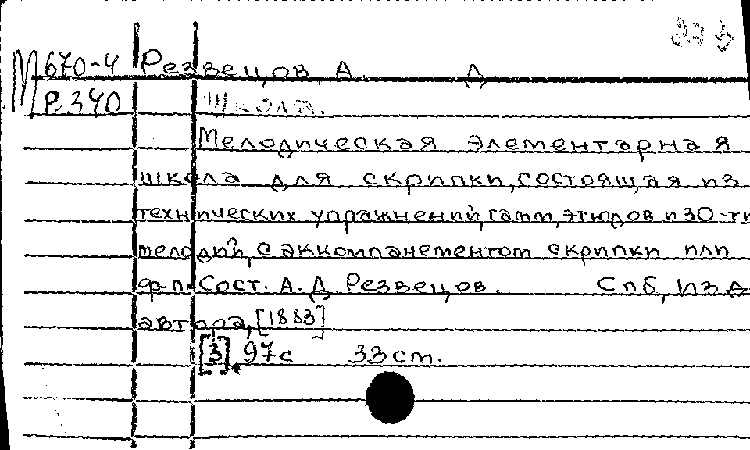 М 670-4 Резвецов, А. Д.
Р 340 Школа.
Мелодическая элементарная
школа для скрипки, состоящая из
технических упражнений, гамм, этюдов и 30-ти
мелодий, с аккомпанементом скрипки или
ф-п. Сост. А. Д. Резвецов. Спб, изд.
автора, [1883]
[3], 97 с 33 см.